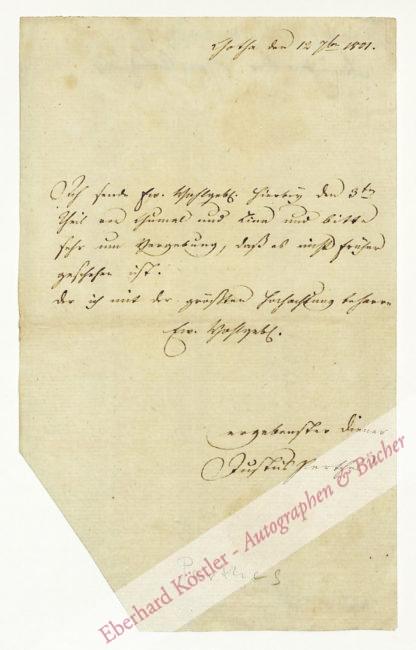 Gotha den 12 7br 1801.
Ich sende Ew. Wohlgeb. hierbey den 3ten
Theil von Humel und Lina und bitte
sehr um Vergebung, daß es nicht früher
geschehen ist.
der ich mit der größten Hochachtung beharre
Ew. Wohlgeb.
ergebenster Diener
Justus Perthes
Perthes
Eberhard Köstler - Autographen & Bücher